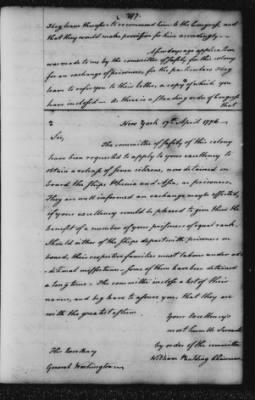 they leave therefore to recommend him to the Congress and
that they would make provision for him accordingly —
A few days ago application
was made to me by the committee of safety for this colony
for an exchange of prisoners, for the particulars I beg
leave to refer you to their letter, a copy of which you
have inclosed — as there is a standing order of Congress
that
New York 17th April 1776 —
Sir,
The committee of safety of this colony
have been requested to apply to your excellency to
obtain a release of some citizens, now detained on
board the ships Phenix and Asia, as prisoners,
They are well informed an exchange may be effected,
if your excellency could be pleased to give them the
benefit of a number of your prisoners of equal rank —
Should either of the ships depart with prisoners on
board, their respective families must labour under ad-
ditional misfortune — some of them have been detained
a long time — The committee inclose a list of their
names, and beg leave to assure you, that they are
with the greatest esteem.
Your excellency's
most humble Servants
by order of the committee
William Paulding Chairman
His Excellency
General Washington